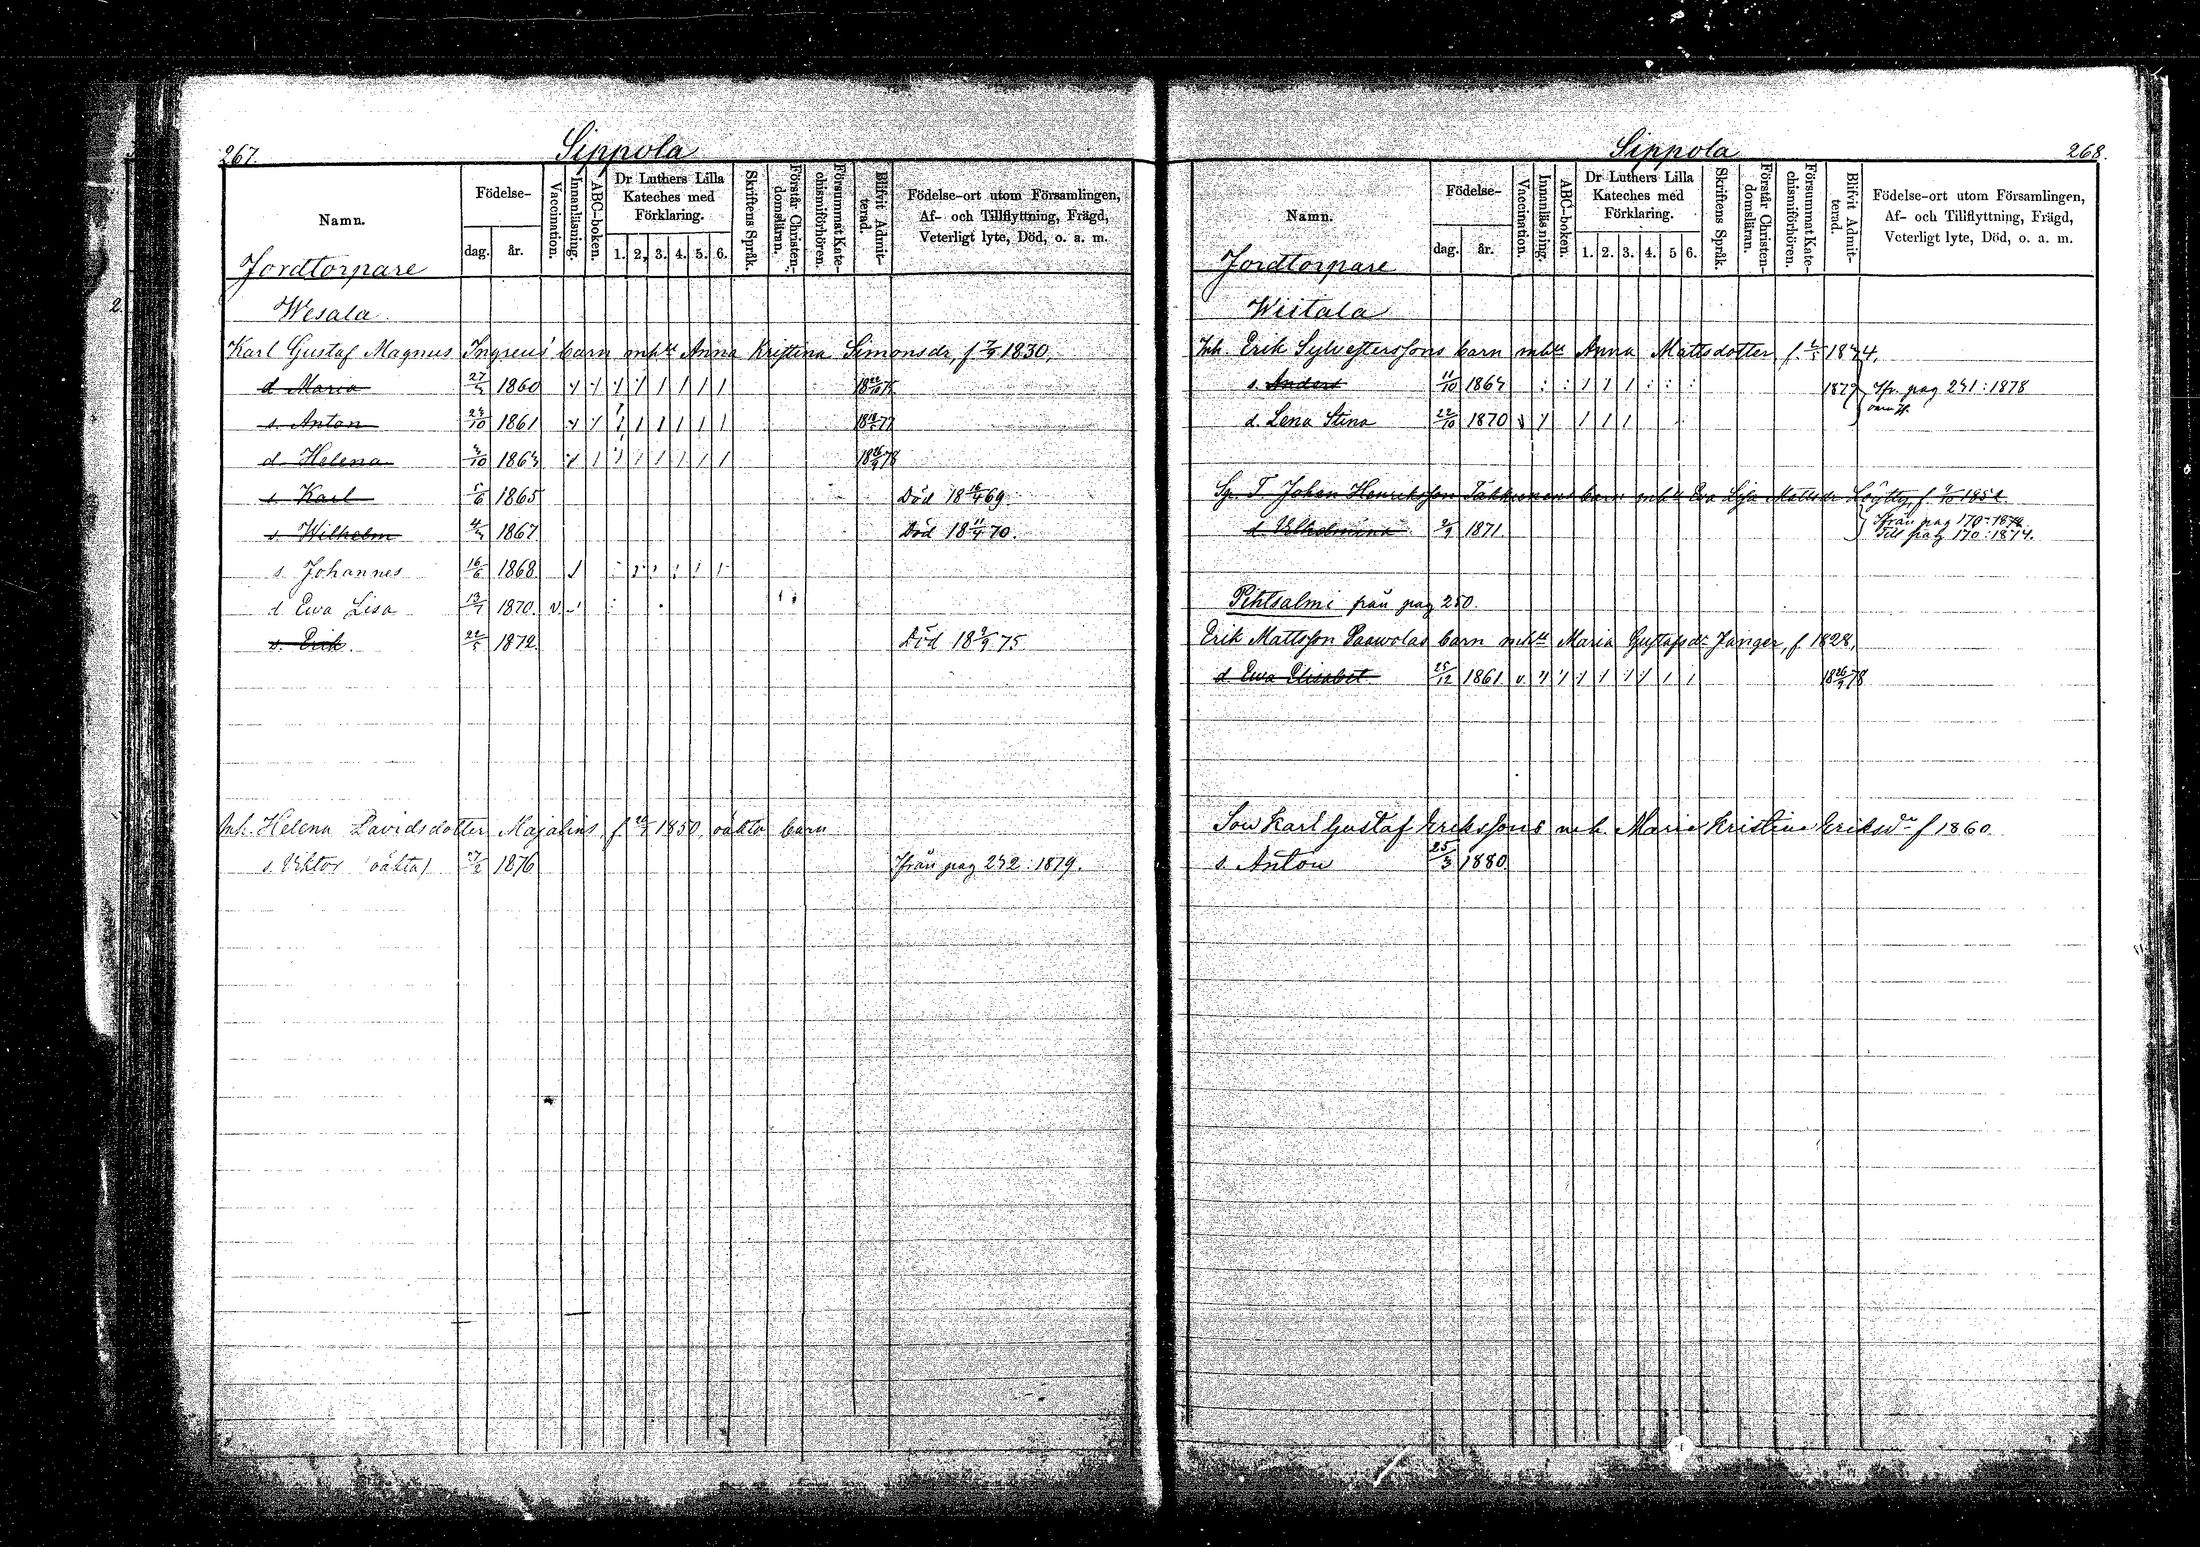 267.
Sippola
Namn.
Födelse-
dag. år.
Vaccination.
Innanläsning.
ABC-boken.
Dr Luthers Lilla Kateches med Förklaring.
1. 2. 3. 4. 5. 6.
Skriftens Språk.
Förstår Christendomsläran.
Försummat Katechismiförhören.
Blifvit Admitterad.
Födelse-ort utom Församlingen, Af- och Tillflyttning, Frägd, Veterligt lyte, Död, o. a. m.
Jordtorpare
2.
Wesala
Karl Gustaf Magnus Ingreus' barn mh Anna Kristina Simonsdr, f. 1830.
d Maria 1860
s. Anton 1861
d Helena 1863
s. Karl 5/6 1865 Död 18 16/4 69
s. Wilhelm 1867 Död 18 11/4 70.
s. Johannes 16/6 1868
d Ewa Lisa 1870. v
s. Erik 22/5 1872. Död 18 75
Inh. Helena Davidsdotter Majalins, f. 1850, oäkta barn
s. Viktor (oäkta) 1876 Ifrån pag 242: 1879.
Sippola
268.
Namn.
Födelse-
dag. år.
Vaccination.
Innanläsning.
ABC-boken.
Dr Luthers Lilla Kateches med Förklaring.
1. 2. 3. 4. 5 6.
Skriftens Språk.
Förstår Christendomsläran.
Försummat Katechismiförhören.
Blifvit Admitterad.
Födelse-ort utom Församlingen, Af- och Tillflyttning, Frägd, Veterligt lyte, Död, o. a. m.
Jordtorpare
Wiitala
Inh. Erik Sylvesterssons barn mh Anna Mattsdotter, f.
s. Anders 11/10 1864 1879 Ifr. pag 241: 1878
d. Lena Stina 22/10 1870
Johan Henriksson barn mh Eva Lisa Mattsdr f.
d. Wilhelmina 1871. Ifrån pag 170:
Till pag 170: 1874.
Pihtsalmi från pag 250.
Erik Mattsson Paawolas barn mh Maria Gustafsdr Junger, f. 1828,
d Ewa Elisabet 25/12 1861 v
Son Karl Gustaf Erikssons m.h. Maria Kristina Eriksdr f 1860.
s. Anton 25/3 1880.